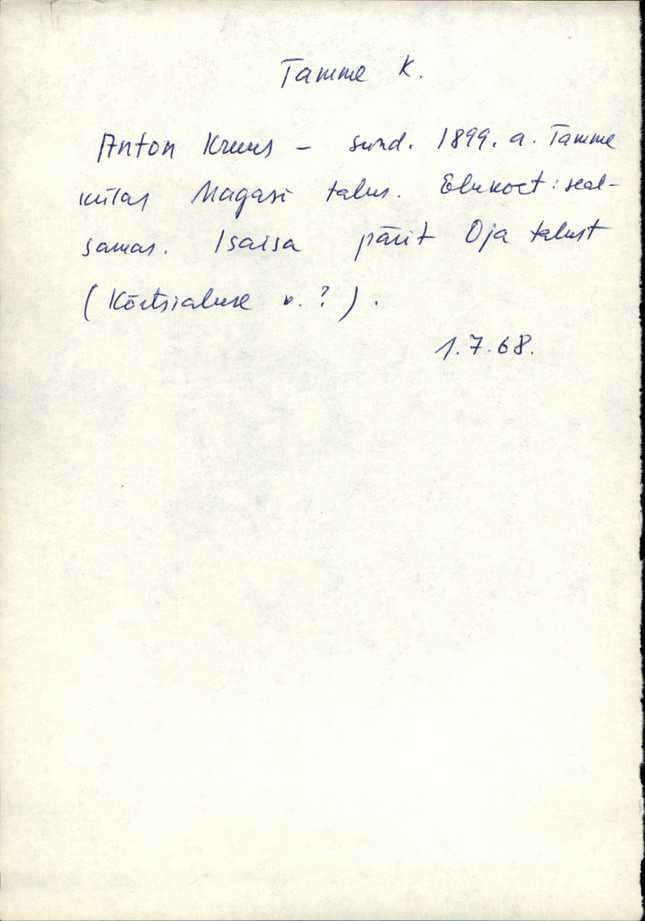 Tamme K.
Anton Kruus – sünd. 1899. a. Tamme
külas Magasi talus. Elukoht: seal-
samas. Isaisa pärit Oja talust
(Kõrtsialuse v. ?).
1.7.68.